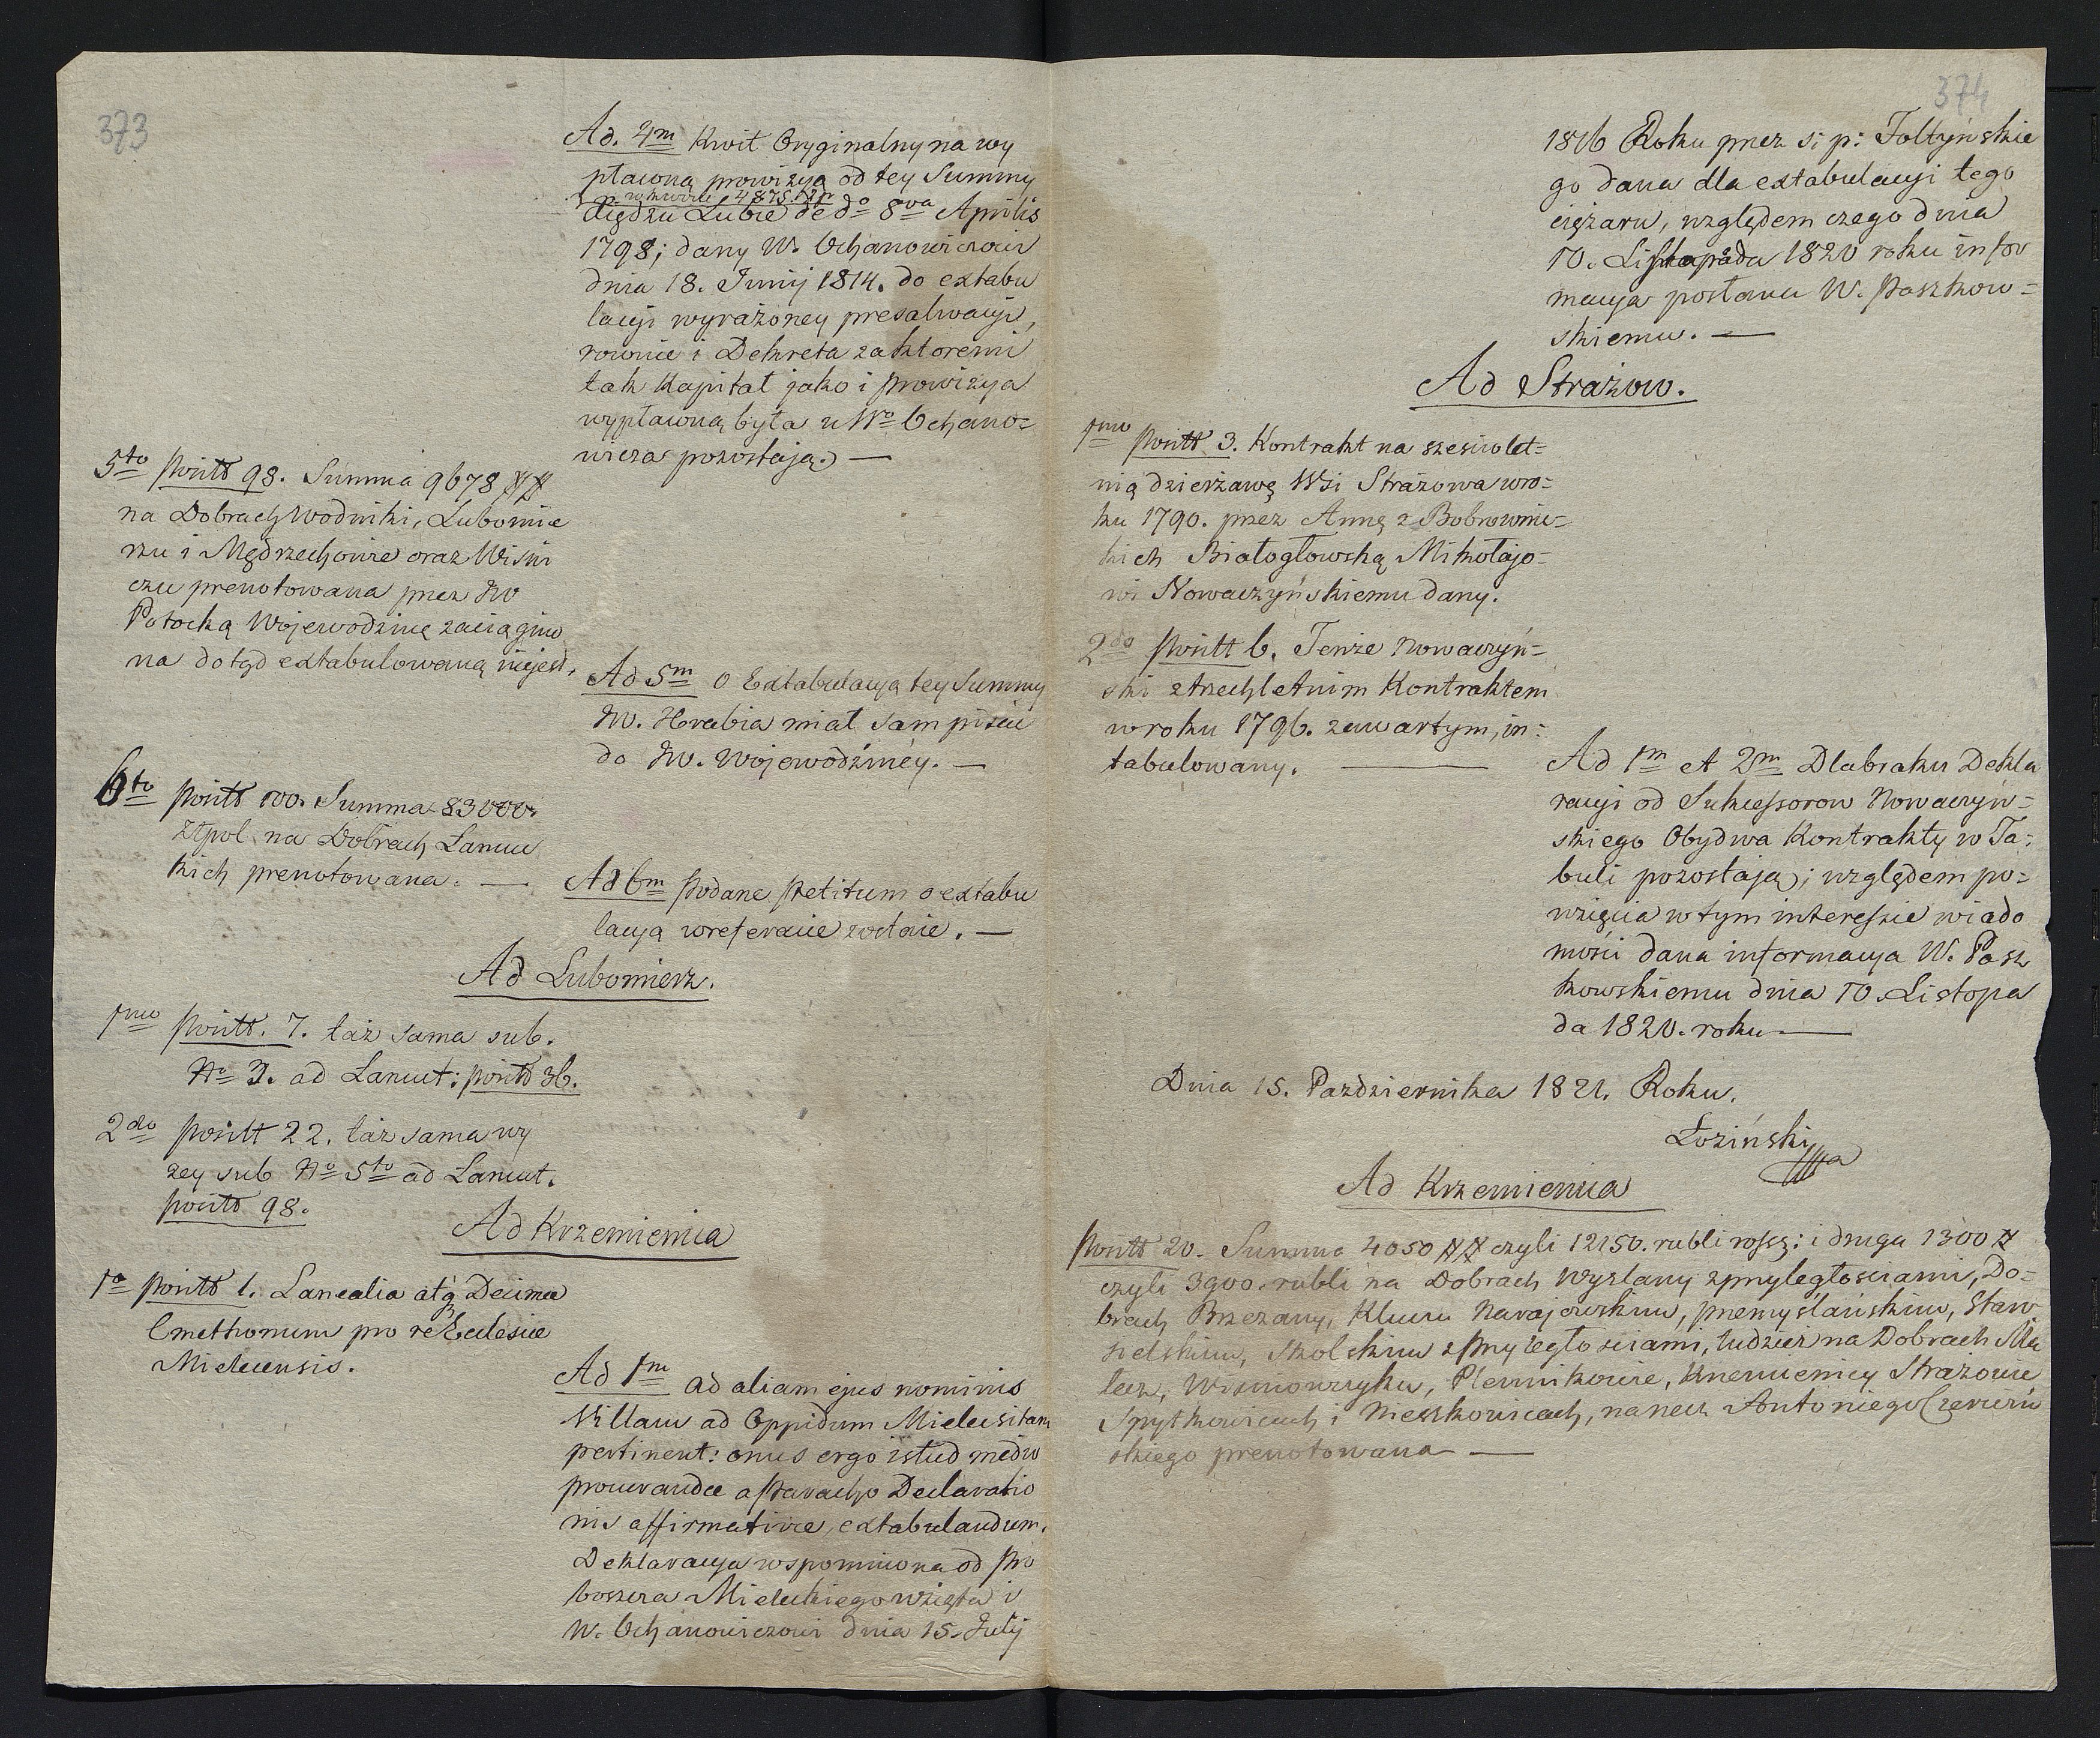 373
Ad. 4m Kwit Oryginalny na wy
płaconą prowizyą od tey Summy
w kwocie 4875
Xiędzu Lubie de do 8va Aprilis
1798; dany W. Ochanowiczowi
dnia 18. Junij 1814. do extabu
lacyi wyrażoney presalwacyi,
rownie i Dekreta za ktoremi
tak Kapitał jako i prowizya
wypłaconą była u Wo Ochano=
wicza pozostają. —
5to positt 98. Summa 9678 ##
na Dobrach Wodniki, Lubomie
rzu i Mędrzechowie oraz Wiśni
czu prenotowana przez JW
Potocką Wojewodzinę zaciągnio
na dotąd extabulowaną niejest.
Ad 5m O Extabulacyą tey Summy
JW. Hrabia miał sam pisać
do JW. Wojewodziney. —
6to positt 100. Summa 83000.
Złpol. na Dobrach Łańcuc
kich prenotowana. —
Ad 6m podane petitum o extabu
lacyą w referacie zostaie. —
Ad Lubomierz.
1mo positt. 7. taż sama sub.
No 3. ad Łańcut: positt 36.
2do positt 22. taż sama wy
zey sub No 5to ad Łańcut.
positt 98.
Ad Krzemienica
1o positt 1. Lanealia atq Decima
Cmethonum pro re Ecclesiae
Mielecensis.
Ad 1m ad aliam ejus nominis
Villam ad Oppidum Mielecsitam
pertinent: onus ergo istud medio
procurandae a Paracho Declaratio
nis affirmativae, extabulandum.
Deklaracya wspomniona od Pro
boszcza Mieleckiego wzięta i
W. Ochanowiczowi dnia 15. Julij
374
1816 Roku przez ś: p: Foltyńskie
go dana dla extabulacyi tego
ciężaru, względem czego dnia
10. Listopada 1820 roku infor
macya posłana W. Paszkow=
skiemu. —
Ad Strażow.
1mo positt 3. Kontrakt na sześciolet=
nią dzierżawę Wsi Strażowa w ro=
ku 1790. przez Annę z Bobrowni=
kich Białogłowską Mikołajo=
wi Nowaczyńskiemu dany.
2do positt 6. Tenże Nowaczyń=
ski z trzechletnim Kontraktem
w roku 1796. zawartym, in=
tabulowany. —
Ad 1m et 2m Dla braku Dekla
racyi od Sukcessorow Nowaczyń=
skiego Obydwa Kontrakty w Ta=
buli pozostają; względem po=
wzięcia w tym interessie wiado
mości dana informacya W. Pasz
kowskiemu dnia 10. Listopa
da 1820. roku —
Dnia 15. Pazdziernika 1821. Roku.
Łoziński
Ad Krzemienica
positt 20. Summa 4050 ## czyli 12150. rubli rossy: i druga 1300 #
czyli 3900. rubli na Dobrach Wyzlany z przyległosciami, Do=
brach Brzezany, Kluczu Narajowskim, przemyślańskim, Staw
sielskim, Skolskim z przyległosciami, tudziez na Dobrach Mie
lecz, Wiśniowczyku, Plennikowie, Krzemienicy Strażowie
Spytkowicach i Nieszkowicach, na rzecz Antoniego Czerwiń
skiego prenotowana —